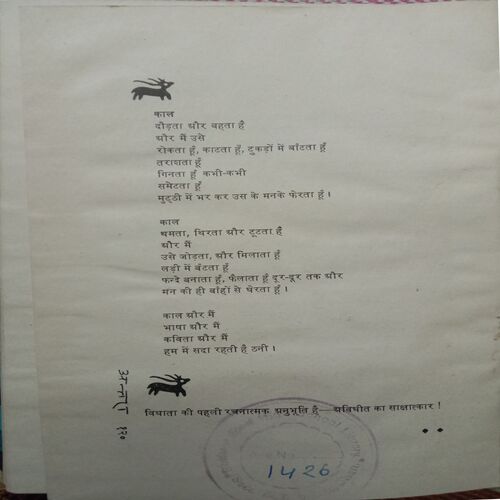 काल
दौड़ता और बहता है
और मैं उसे
रोकता हूँ, काटता हूँ, टुकड़ों में बाँटता हूँ
तराशता हूँ
गिनता हूँ कभी-कभी
समेटता हूँ
मुट्ठी में भर कर उस के मनके फेरता हूँ ।
काल
थमता, थिरता और टूटता है
और मैं
उसे जोड़ता, और मिलाता हूँ
लड़ी में बँटता हूँ
फन्दे बनाता हूँ, फैलाता हूँ दूर-दूर तक और
मन की ही बाँहों से घेरता हूँ ।
काल और मैं
भाषा और मैं
कविता और मैं
हम में सदा रहती है ठनी ।
विधाता की पहली रचनात्मक अनुभूति है—अविधीत का साक्षात्कार !
१२०
1426